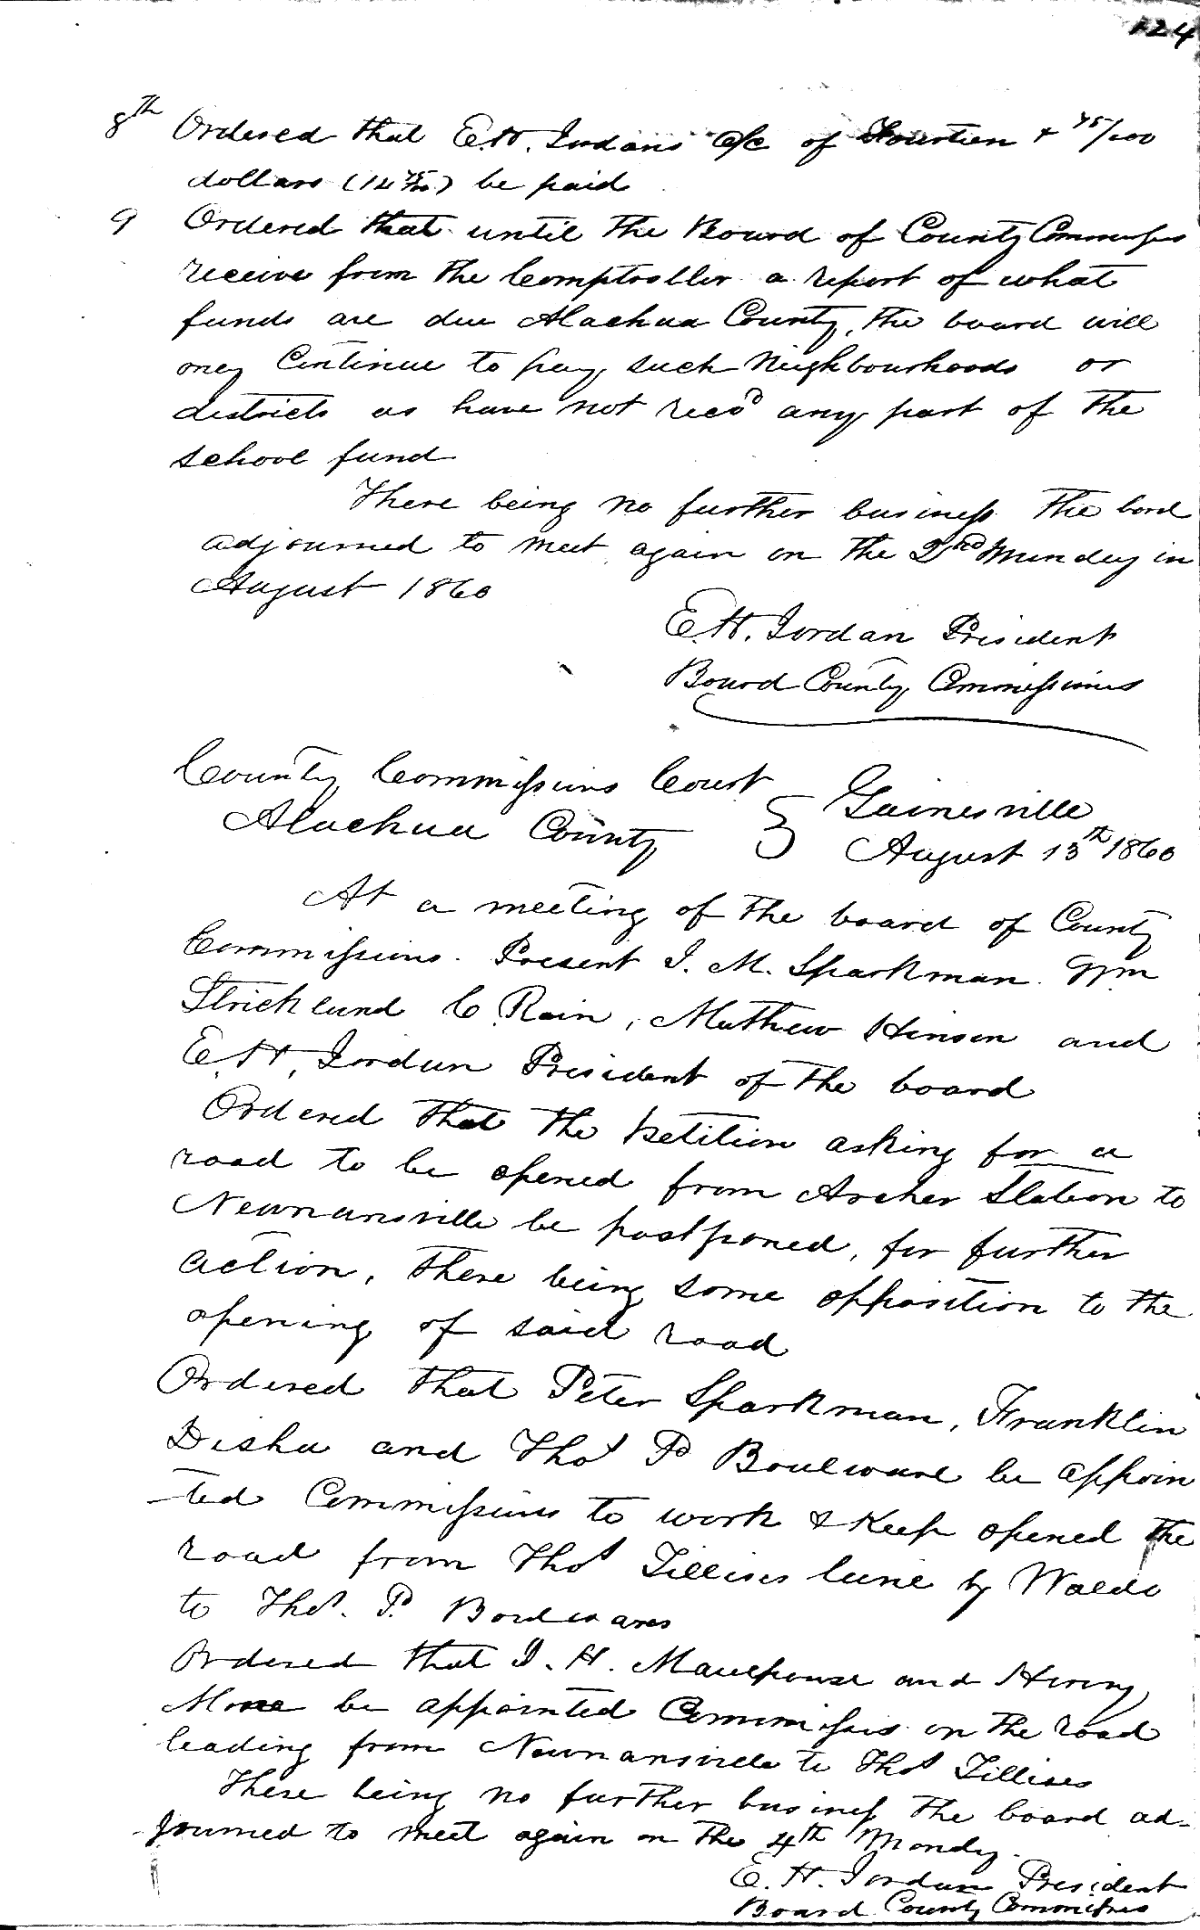 124
8th Ordered that E.H. Jordans a/c of Fourteen & 75/100
dollars (14 75/100) be paid
9 Ordered that until the Board of County Commissrs
receive from the Comptroller a report of what
funds are due Alachua County, the board will
ony Continue to pay such Neighbourhoods or
districts as have not recd any part of the
school fund
There being no further business the bord
adjourned to meet again on the 2nd Munday in
August 1860
E.H. Jordan President
Board County Commissioners
County Commissions Court } Gainesville
Alachua County } August 13th 1860
At a meeting of the board of County
Commissions. Present J. M. Sparkman. Wm
Strickland C. Rain, Mathew Hinson and
E.H. Jordan President of the board
Ordered that the petition asking for a
road to be opened from Archer Station to
Newnansville be postponed, for further
action, there being some opposition to the
opening of said road
Ordered that Peter Sparkman, Franklin
Disha and Thos P Boulware be appoin
-ted Commissions to work & Keep opened the
road from Thos Tillises lane by Waldo
to Thos. P. Boulwares
Ordered that J. H. and Henry
be appointed Commissrs on the road
leading from Newnansville to Thos Tillises
There being no further business the board ad-
journed to meet again on the 4th Mondy.
E. H. Jordan President
Board County Commissrs